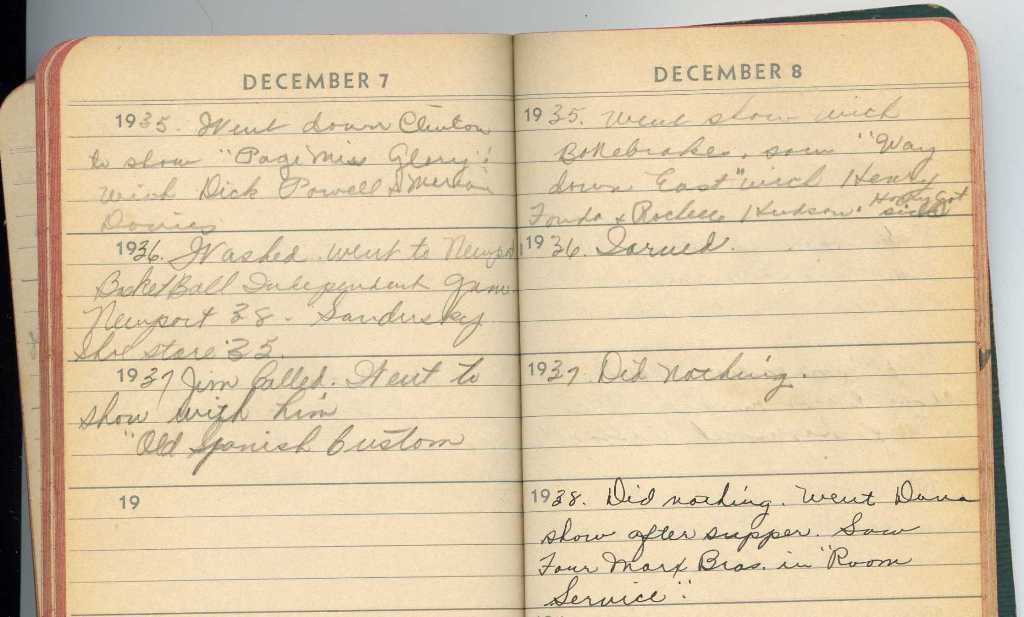 DECEMBER 7
1935. Went down Clinton
to show "Page Miss Glory".
with Dick Powell & Marion
Davies
1936. Washed. went to Newport
Basket Ball Independent game
Newport 38 - Sandusky
Shoe store 35.
1937 Jim Called. Went to
show with him
"Old Spanish Custom
19
DECEMBER 8
1935. Went show with
Bonebrakes, saw "Way
down East" with Henry
Fonda & Rochelle Hudson.
1936.
1937 Did nothing.
1938. Did nothing. Went Dana
show after supper. Saw
Four Marx Bros. in "Room
Service".